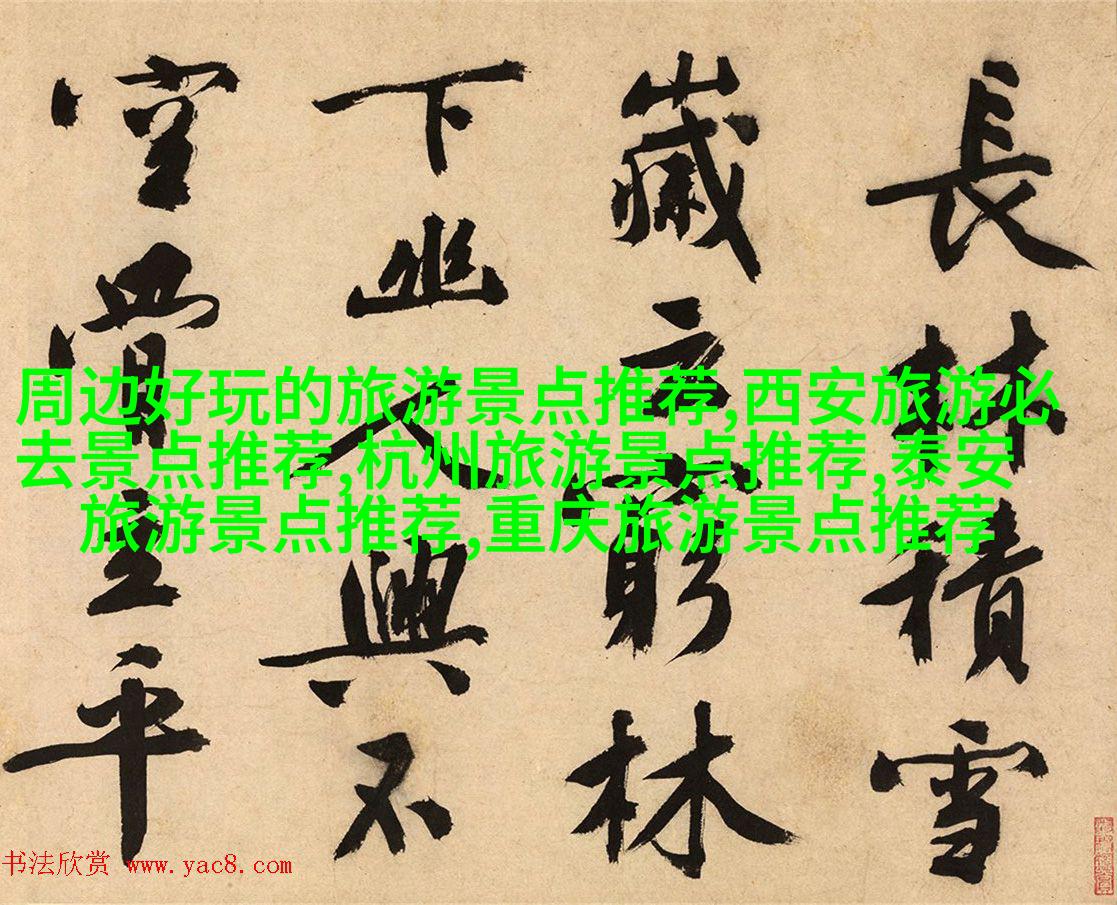 長林積雪
歲云窮林
下幽人興不
空 平
周边好玩的旅游景点推荐,西安旅游必
去景点推荐,杭州旅游景点推荐,泰安
旅游景点推荐,重庆旅游景点推荐
书法欣赏 www.yac8.com